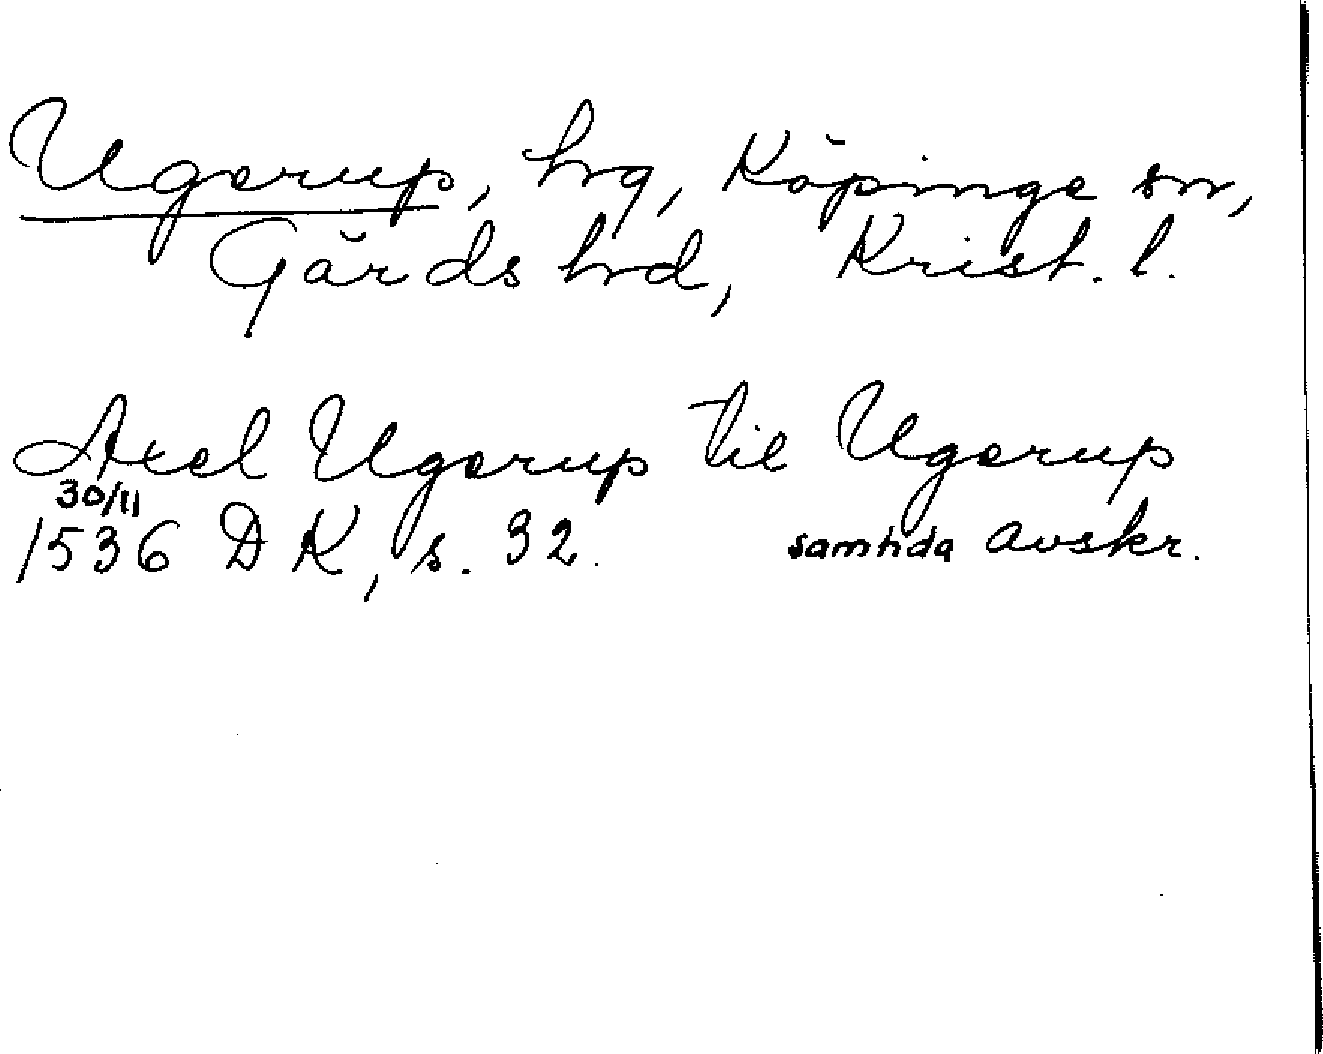 Ugerup, hrg, Köpinge sn,
Gärds hrd, Krist. l.
Axel Ugerup til Ugerup
30/11
1536 DK, s. 32. samtida avskr.